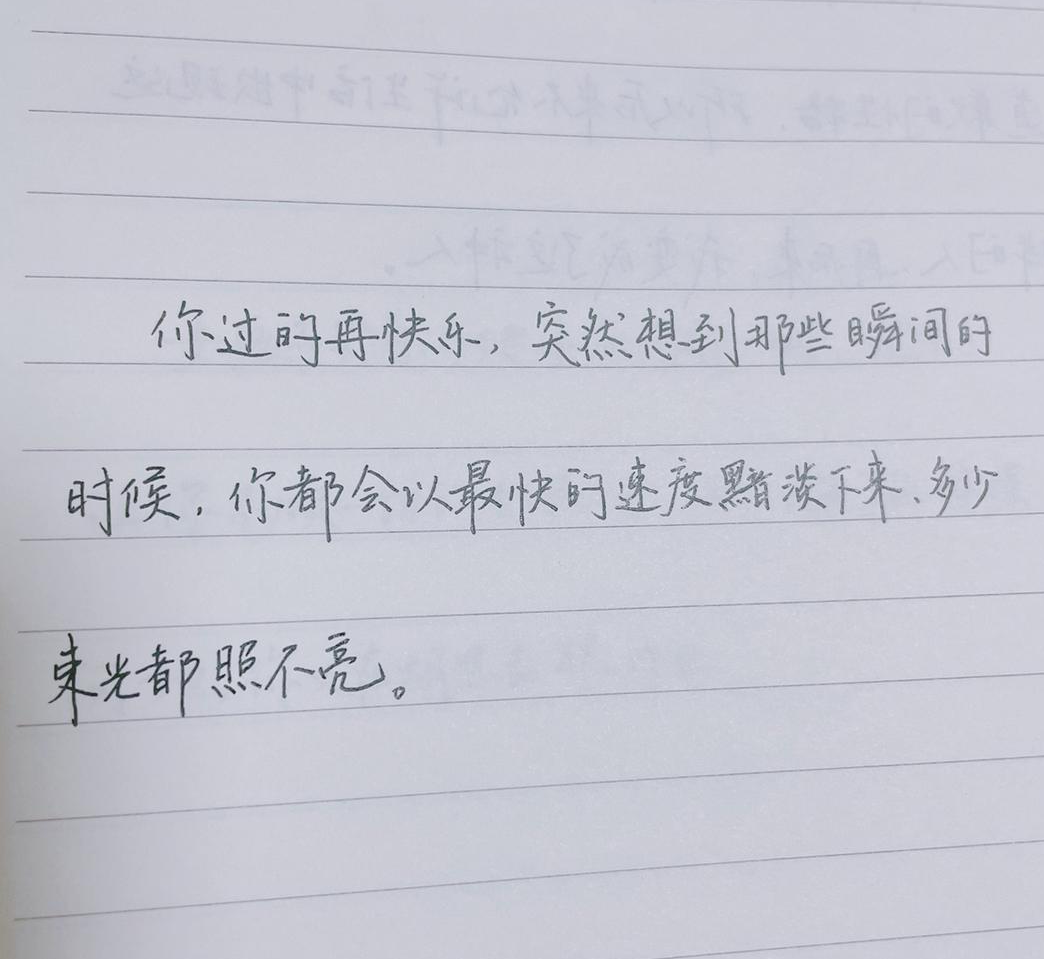 你过的再快乐，突然想到那些瞬间的
时候，你都会以最快的速度黯淡下来、多少
束光都照不亮。